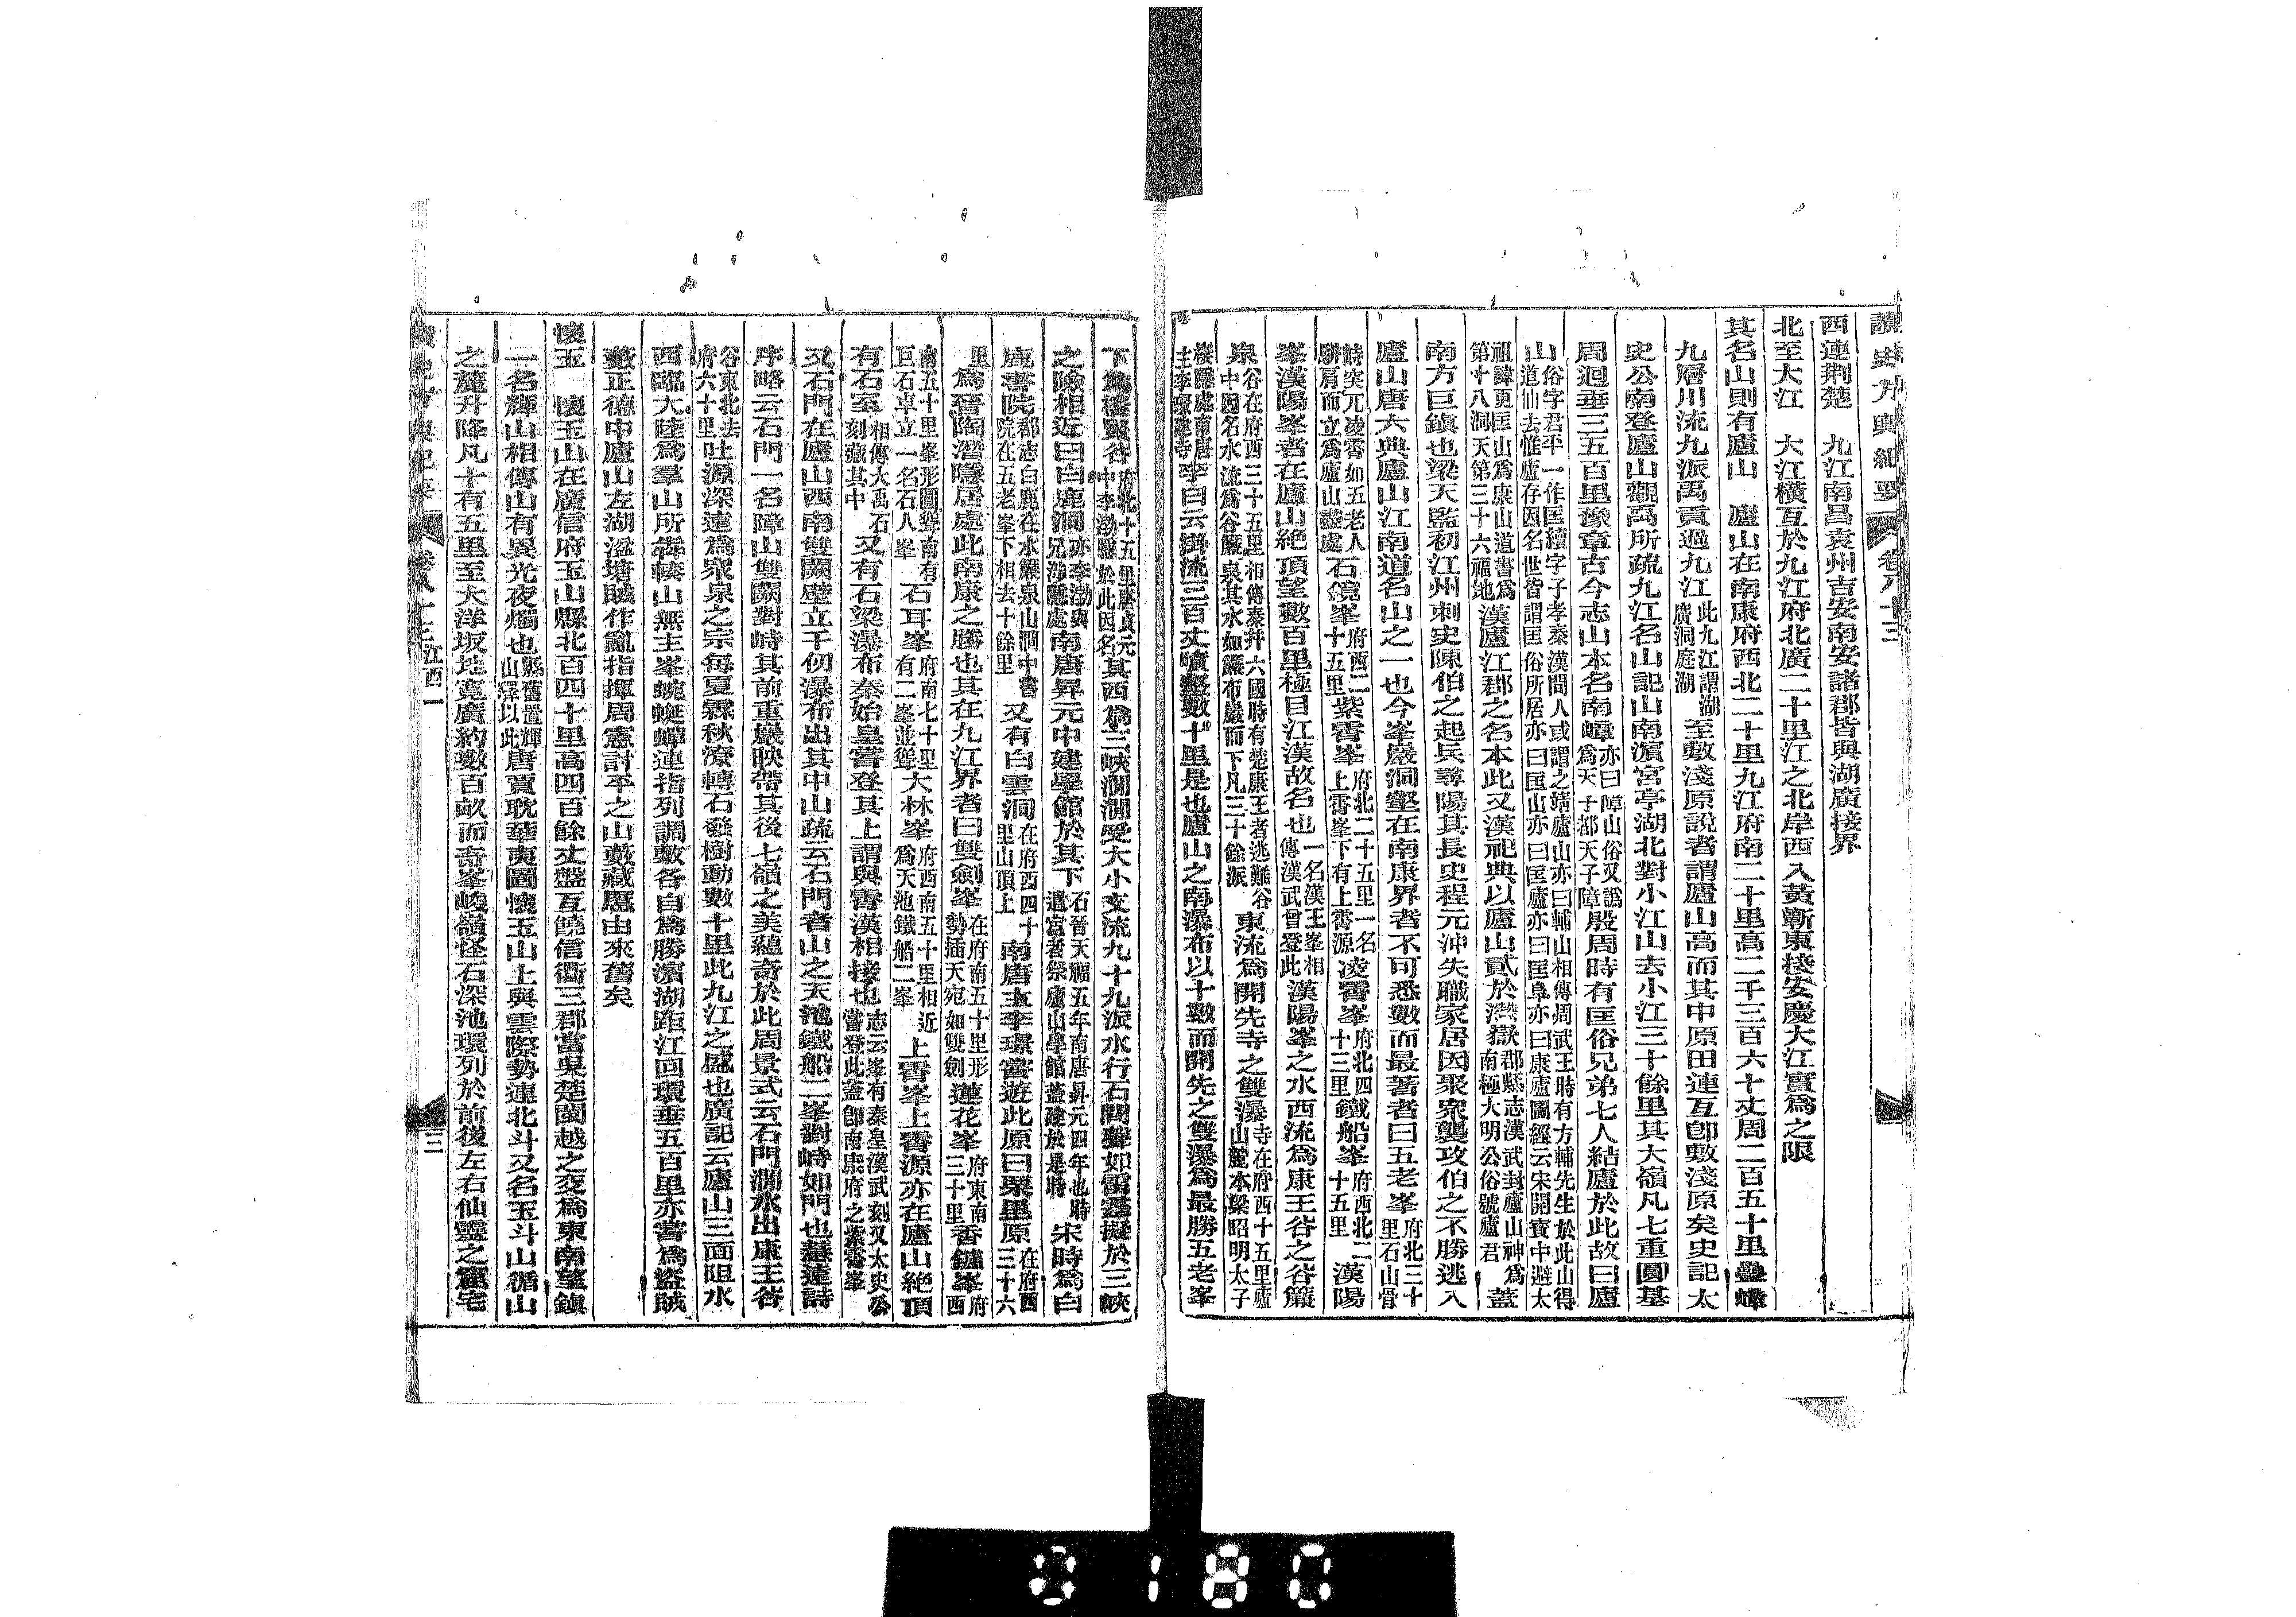 讀史方輿紀要 卷八十三
西連荆楚　九江南昌袁州吉安南安諸郡皆與湖廣接界
北至大江　大江橫亙於九江府北廣二十里江之北岸西入黃蘄東接安慶大江實爲之限
其名山則有廬山　廬山在南康府西北二十里九江府南二十里高二千三百六十丈周二百五十里疊嶂
九層川流九派禹貢過九江此九江謂湖廣洞庭湖至敷淺原說者謂廬山高而其中原田連亙卽敷淺原矣史記太
史公南登廬山觀禹所疏九江名山記山南濵宮亭湖北對小江山去小江三十餘里其大嶺凡七重圓基
周迴垂三五百里豫章古今志山本名南嶂亦曰障山俗又譌爲天子都天子障殷周時有匡俗兄弟七人結廬於此故曰廬
山俗字君平一作匡續字子孝秦漢間人或謂之靖廬山亦曰輔山相傳周武王時有方輔先生於此山得山道仙去惟廬存因名世皆謂匡俗所居亦曰匡山亦曰匡廬亦曰匡阜亦曰康廬圖經云宋開寶中避太
祖諱更匡山爲康山道書爲第十八洞天第三十六福地漢廬江郡之名本此又漢祀典以廬山貳於灊嶽郡縣志漢武封廬山神爲南極大明公俗號廬君蓋
南方巨鎭也梁天監初江州刺史陳伯之起兵尋陽其長史程元沖失職家居因聚衆襲攻伯之不勝逃入
廬山唐六典廬山江南道名山之一也今峯巖洞壑在南康界者不可悉數而最著者曰五老峯府北三十里石山骨
峙突兀凌霄如五老人騈肩而立爲廬山盡處石鏡峯府西二十五里紫霄峯府北二十五里一名上霄峯下有上霄源凌霄峯府北四十三里鐵船峯府西北二十五里漢陽
峯漢陽峯者在廬山絶頂望數百里極目江漢故名也一名漢王峯相傳漢武曾登此漢陽峯之水西流爲康王谷之谷簾
泉谷在府西三十五里相傳秦幷六國時有楚康王者逃難谷中因名水流爲谷簾泉其水如簾布巖而下凡三十餘派東流爲開先寺之雙瀑寺在府西十五里廬山麓本梁昭明太子
棲隱處南唐主李璟建寺李白云掛流三百丈噴壑數十里是也廬山之南瀑布以十數而開先之雙瀑爲最勝五老峯
下爲棲賢谷府北十五里唐貞元中李渤隱於此因名其西爲三峽澗澗受大小支流九十九派水行石間聲如雷霆擬於三峽
之險相近曰白鹿洞亦李渤與兄涉隱處南唐昇元中建學館於其下石晉天福五年南唐昇元四年也時遣宮者祭廬山學館蓋建於是時宋時爲白
鹿書院郡志白鹿在水簾泉山澗中書院在五老峯下相去十餘里又有白雲洞在府西四十里山頂上南唐主李璟嘗遊此原曰栗里原在府西三十六
里爲晉陶潛隱居處此南康之勝也其在九江界者曰雙劍峯在府南五十里形勢插天宛如雙劍蓮花峯府東南三十里香鑪峯府西
南五十里峯形圓聳南有巨石卓立一名石人峯石耳峯府南七十里有二峯並聳大林峯府西南五十里相近爲天池鐵船二峯上霄峯上霄源亦在廬山絶頂
有石室相傳大禹石刻藏其中又有石梁瀑布秦始皇嘗登其上謂與霄漢相接也志云峯有秦皇漢武刻又太史公嘗登此蓋卽南康府之紫霄峯
又石門在廬山西南雙闕壁立千仞瀑布出其中山疏云石門者山之天池鐵船二峯對峙如門也慧遠詩
序略云石門一名障山雙闕對峙其前重巖映帶其後七嶺之美蘊奇於此周景式云石門澗水出康王谷
谷東北去府六十里吐源深遠爲衆泉之宗每夏霖秋潦轉石發樹動數十里此九江之盛也廣記云廬山三面阻水
西臨大陸爲羣山所犇輳山無主峯蜿蜒蟬連指列調敷各自爲勝濵湖距江回環垂五百里亦嘗爲盜賊
藪正德中廬山左湖溢塘賊作亂指揮周憲討平之山藪藏慝由來舊矣
懷玉　懷玉山在廣信府玉山縣北百四十里高四百餘丈盤亙饒信衢三郡當吳楚閩越之交爲東南望鎭
一名輝山相傳山有異光夜燭也縣舊置輝山驛以此唐賈耽華夷圖懷玉山上與雲際勢連北斗又名玉斗山循山
之麓升降凡十有五里至大洋坂地寬廣約數百畝而奇峯峻嶺怪石深池環列於前後左右仙靈之窟宅
卷八十三江西一
三
0180